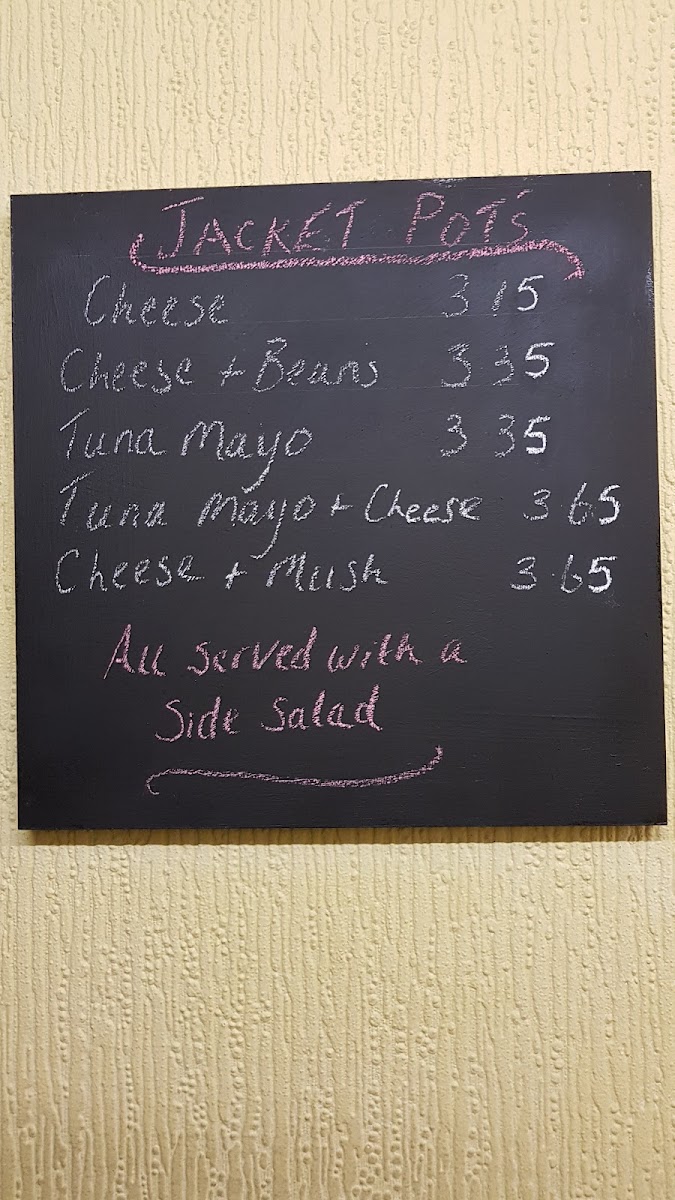 JACKET POT'S
Cheese 3 15
Cheese + Beans 3 35
Tuna Mayo 3 35
Tuna Mayo + Cheese 3 65
Cheese + Mush 3.65
All served with a
Side Salad